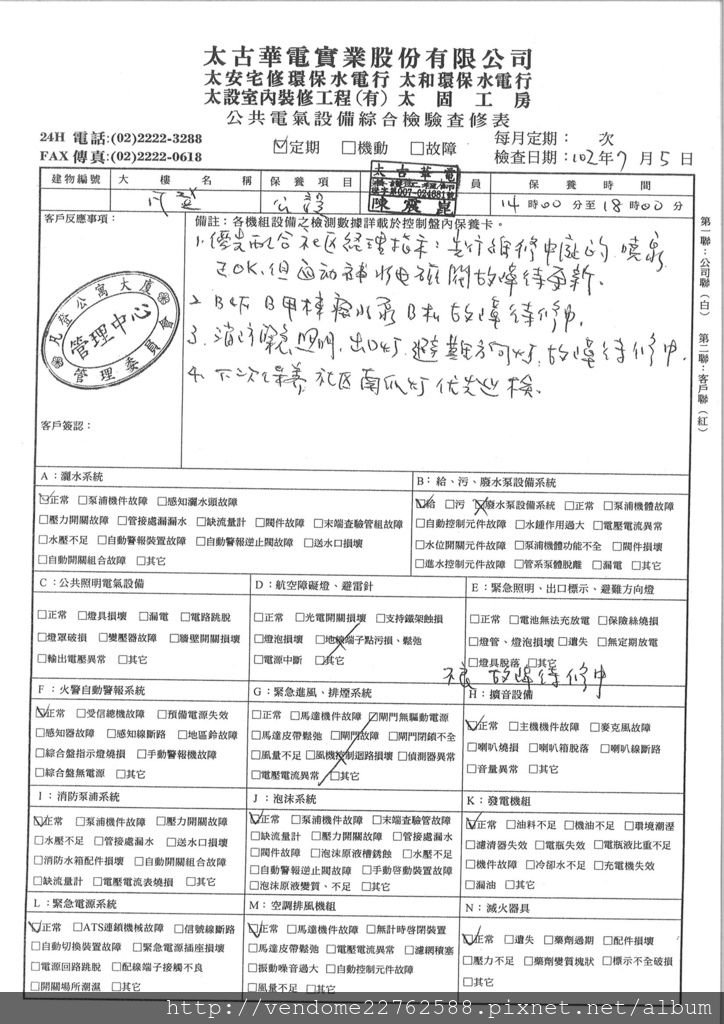 太古華電實業股份有限公司
太安宅修環保水電行 太和環保水電行
太設室內裝修工程(有) 太固工房
公共電氣設備綜合檢驗查修表
24H 電話:(02)2222-3288
FAX 傳真:(02)2222-0618
☑定期 □機動 □故障
每月定期： 次
檢查日期：102年7月5日
建物編號 大樓名稱 保養項目 員 保養時間
太古華電
陳震崑
凡登 公設 14時00分至18時00分
客戶反應事項：
備註：各機組設備之檢測數據詳載於控制盤內保養卡。
1.優先配合社區經理指示：先行維修中庭的噴泉
已OK,但自動補水電磁開故障待更新.
2. B4F B甲棟廢水泵B私故障待修中.
3. 消防 照明,出口灯,避難方向灯,故障待修中.
4. 下次保養社區南瓜灯优先巡檢.
凡登公寓大廈
管理中心
管理委員會
客戶簽認：
第一聯：公司聯(白) 第二聯：客戶聯(紅)
A：灑水系統
☑正常 □泵浦機件故障 □感知灑水頭故障
□壓力開關故障 □管接處漏漏水 □缺流量計 □閥件故障 □末端查驗管組故障
□水壓不足 □自動警報裝置故障 □自動警報逆止閥故障 □送水口損壞
□自動開關組合故障 □其它
B：給、污、廢水泵設備系統
☑給 □污 ☒廢水泵設備系統 □正常 □泵浦機體故障
□自動控制元件故障 □水錘作用過大 □電壓電流異常
□水位開關元件故障 □泵浦機體功能不全 □閥件損壞
□進水控制元件故障 □管系泵體脫離 □漏電 □其它
C：公共照明電氣設備
□正常 □燈具損壞 □漏電 □電路跳脫
□燈罩破損 □變壓器故障 □牆壁開關損壞
□輸出電壓異常 □其它
D：航空障礙燈、避雷針
□正常 □光電開關損壞 □支持鐵架蝕損
□燈泡損壞 □地線端子點污損、鬆弛
□電源中斷 □其它
E：緊急照明、出口標示、避難方向燈
□正常 □電池無法充放電 □保險絲燒損
□燈管、燈泡損壞 □遺失 □無定期放電
□燈具脫落 □其它
不良 故障待修中
F：火警自動警報系統
☑正常 □受信總機故障 □預備電源失效
□感知器故障 □感知線斷路 □地區鈴故障
□綜合盤指示燈燒損 □手動警報機故障
□綜合盤無電源 □其它
G：緊急進風、排煙系統
□正常 □馬達機件故障 □閘門無驅動電源
□馬達皮帶鬆弛 □閘門故障 □閘門閉鎖不全
□風量不足 □風機控制迴路損壞 □偵測器異常
□電壓電流異常 □其它
H：擴音設備
☑正常 □主機機件故障 □麥克風故障
□喇叭燒損 □喇叭箱脫落 □喇叭線斷路
□音量異常 □其它
I：消防泵浦系統
☑正常 □泵浦機件故障 □壓力開關故障
□水壓不足 □管接處漏水 □送水口損壞
□消防水箱配件損壞 □自動開關組合故障
□缺流量計 □電壓電流表燒損 □其它
J：泡沫系統
☑正常 □泵浦機件故障 □末端查驗管故障
□缺流量計 □壓力開關故障 □管接處漏水
□閥件故障 □泡沫原液槽銹蝕 □水壓不足
□自動警報逆止閥故障 □手動啓動裝置故障
□泡沫原液變質、不足 □其它
K：發電機組
☑正常 □油料不足 □機油不足 □環境潮溼
□濾清器失效 □電瓶失效 □電瓶液比重不足
□機件故障 □冷卻水不足 □充電機失效
□漏油 □其它
L：緊急電源系統
☑正常 □ATS連鎖機械故障 □信號線斷路
□自動切換裝置故障 □緊急電源插座損壞
□電源回路跳脫 □配線端子接觸不良
□開關場所潮濕 □其它
M：空調排風機組
☑正常 □馬達機件故障 □無計時啓閉裝置
□馬達皮帶鬆弛 □電壓電流異常 □濾網積塞
□振動噪音過大 □自動控制元件故障
□風量不足 □其它
N：滅火器具
☑正常 □遺失 □藥劑過期 □配件損壞
□壓力不足 □藥劑變質塊狀 □標示不全破損
□其它
http://vendome22762588.pixnet.net/album